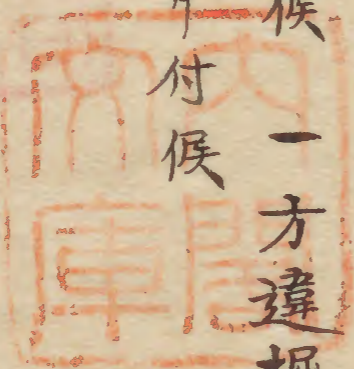 候 一方違
付候
内閣
文庫